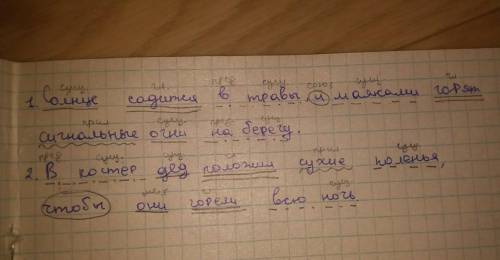 сущ. гл. пред сущ. союз сущ гл
1. Солнце садится в травы, и маяками горят
прил сущ. пред сущ.
сигнальные огни на берегу.
пред сущ. сущ гл прил сущ.
2. В костер дед положил сухие поленья,
гл сущ
чтобы они горели всю ночь